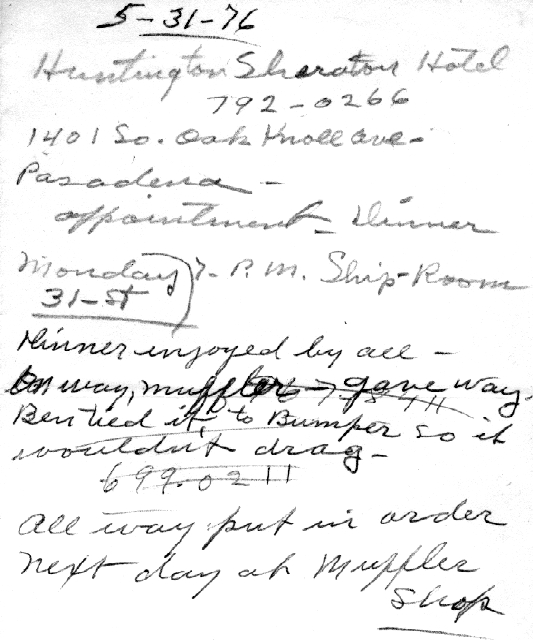 5-31-76
Huntington Sheraton Hotel
792-0266
1401 So. Oak Knoll ave-
Pasadena -
appointment - Dinner
Monday 7- P.M. Ship-Room
31-st
Dinner enjoyed by all -
On way, muffler - gave way.
Ben tied it, to Bumper so it
wouldn't drag -
699-0211
all way put in order
next day at Muffler
Shop